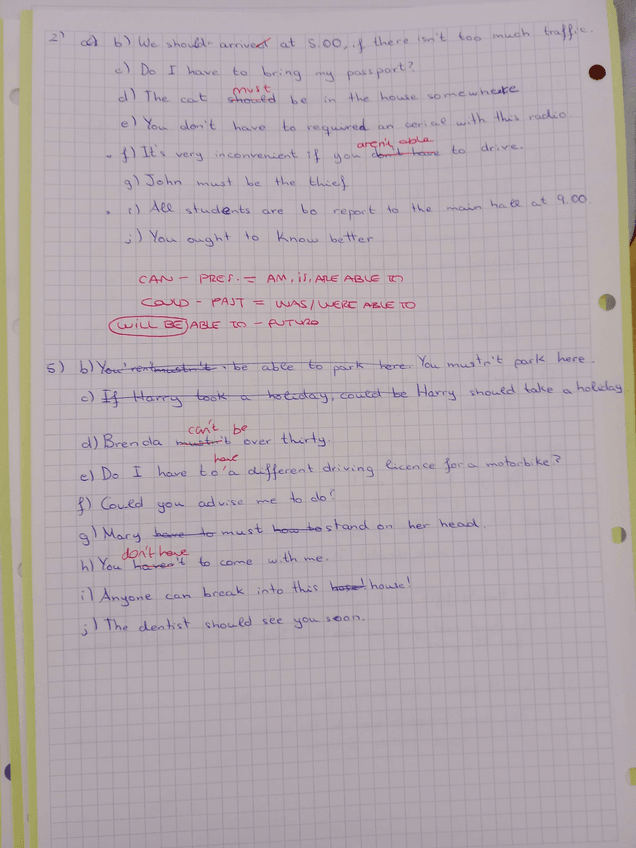 2) b) We should arrive at 5.00, if there isn't too much traffic.
c) Do I have to bring my passport?
must
d) The cat should be in the house somewhere
e) You don't have to required an aerial with this radio.
aren't able
f) It's very inconvenient if you don't have to drive.
g) John must be the thief
i) All students are to report to the main hall at 9.00.
j) You ought to know better
CAN - PRES. = AM, IS, ARE ABLE TO
COULD - PAST = WAS/WERE ABLE TO
WILL BE ABLE TO - FUTURO
5) b) be able to park here. You mustn't park here.
c) If Harry took a holiday, could be Harry should take a holiday
can't be
d) Brenda mustn't over thirty.
have
e) Do I have to a different driving license for a motorbike?
f) Could you advise me to do?
g) Mary have to must how to stand on her head.
don't have
h) You haven't to come with me.
i) Anyone can break into this house!
j) The dentist should see you soon.